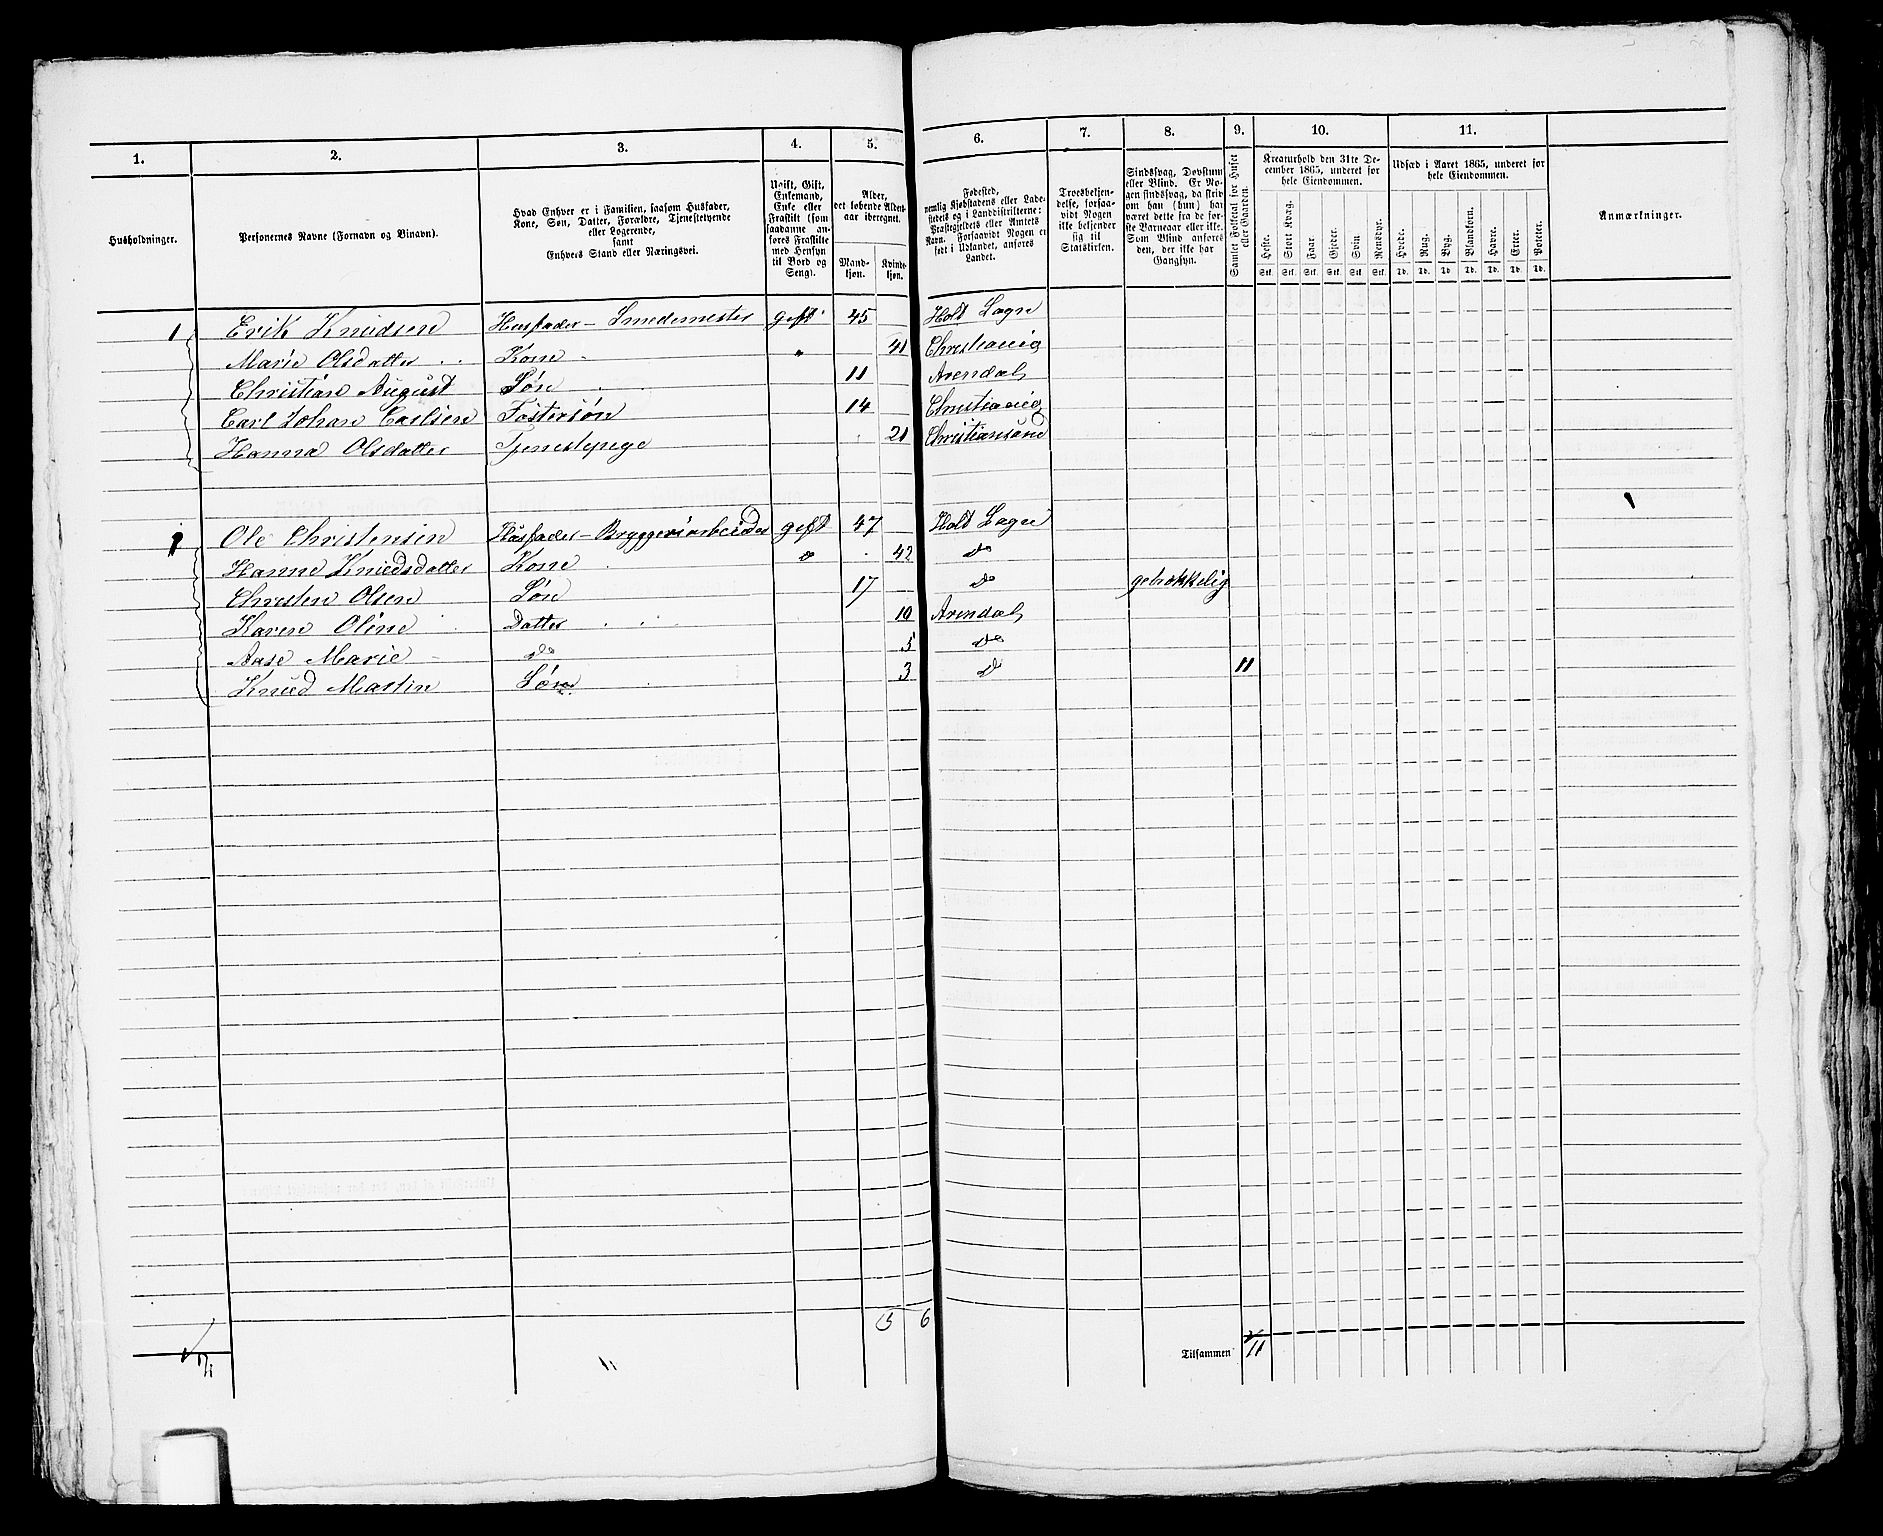 1. 2. 3. 4. 5. 6. 7. 8. 9. 10. 11.
Husholdninger.
Personernes Navne (Fornavn og Binavn).
Hvad Enhver er i Familien, saasom Husfader,
Kone, Søn, Datter, Forældre, Tjenestetyende
eller Logerende,
samt
Enhvers Stand eller Næringsvei.
Ugift, Gift,
Enkemand,
Enke eller
Fraskilt (som
saadanne an-
føres Fraskilte
med Hensyn
til Bord og
Seng).
Alder,
det løbende Alders-
aar iberegnet.
Mand-
kjøn.
Kvinde-
kjøn.
Fødested,
nemlig Kjøbstadens eller Lade-
stedets og i Landdistrikterne:
Præstegjeldets eller Amtets
Navn. Forsaavidt Nogen er
født i Udlandet, anføres
Landet.
Troesbekjen-
delse, forsaa-
vidt Nogen
ikke bekjender
sig til
Statskirken.
Sindssvag, Døvstum
eller Blind. Er No-
gen sindssvag, da skriv
om han (hun) har
været dette fra de før-
ste Barneaar eller ikke.
Som Blind anføres
den, der ikke har
Gangsyn.
Samlet Folketal for Huset
eller Gaarden.
Kreaturhold den 31te De-
cember 1865, underet for
hele Eiendommen.
Heste. Stort Kvæg. Faar. Gjeder. Svin. Rensdyr.
Stk. Stk. Stk. Stk. Stk. Stk.
Udsæd i Aaret 1865, underet for
hele Eiendommen.
Hvede. Rug. Byg. Blandkorn. Havre. Erter. Poteter.
Td. Td. Td. Td. Td. Td. Td.
Anmærkninger.
1 Erik Knudsen Husfader - Smedemester gift 45 Holt Sogn
Marie Olsdatter Kone " 41 Christiania
Christian August Søn 11 Arendal
Carl Johan Carlsen Fostersøn 14 Christiania
Hanna Olsdatter Tjenestepige 21 Christiansand
1 Ole Christensen Husfader - Bryggeriarbeider gift 47 Holt Sogn
Hanne Knudsdatter Kone do 42 do
Christen Olsen Søn 17 do gebrækkelig
Karen Oline Datter 10 Arendal
Aase Marie do 5 do
Knud Martin Søn 3 do 11
5 6
Tilsammen 11